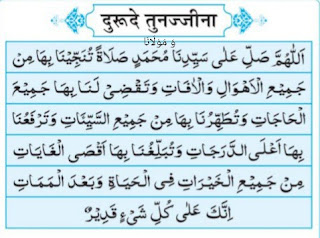 દુરૂદે તુનજ્જીના
و مولانا
اَللّٰهُمَّ صَلِّ عَلٰى سَيِّدِنَا مُحَمَّدٍ صَلَاةً تُنَجِّيْنَا بِهَا مِنْ
جَمِيْعِ الْاَهْوَالِ وَالْاٰفَاتِ وَتَقْضِىْ لَنَا بِهَا جَمِيْعَ
الْحَاجَاتِ وَتُطَهِّرُنَا بِهَا مِنْ جَمِيْعِ السَّيِّئَاتِ وَتَرْفَعُنَا
بِهَا اَعْلَى الدَّرَجَاتِ وَتُبَلِّغُنَا بِهَا اَقْصَى الْغَايَاتِ
مِنْ جَمِيْعِ الْخَيْرَاتِ فِى الْحَيَاةِ وَبَعْدَ الْمَمَاتِ
اِنَّكَ عَلٰى كُلِّ شَىْءٍ قَدِيْرٌ